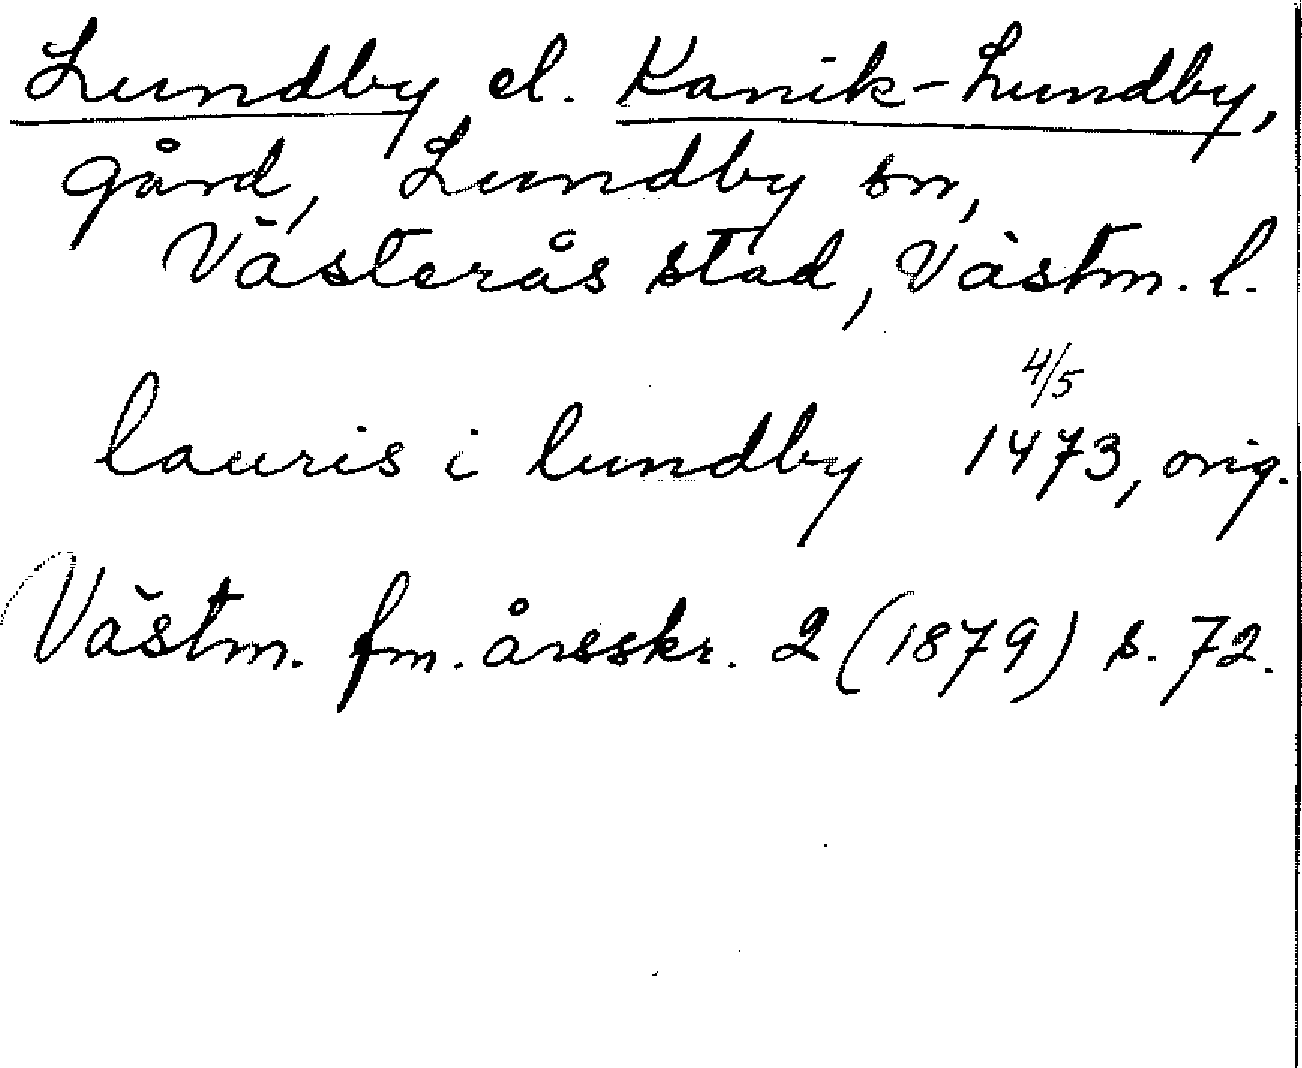 Lundby el. Kanik-Lundby,
gård, Lundby sn,
Västerås stad, Västm. l.
4/5
lauris i lundby 1473, orig.
Västm. fm. årsskr. 2 (1879) s. 72.